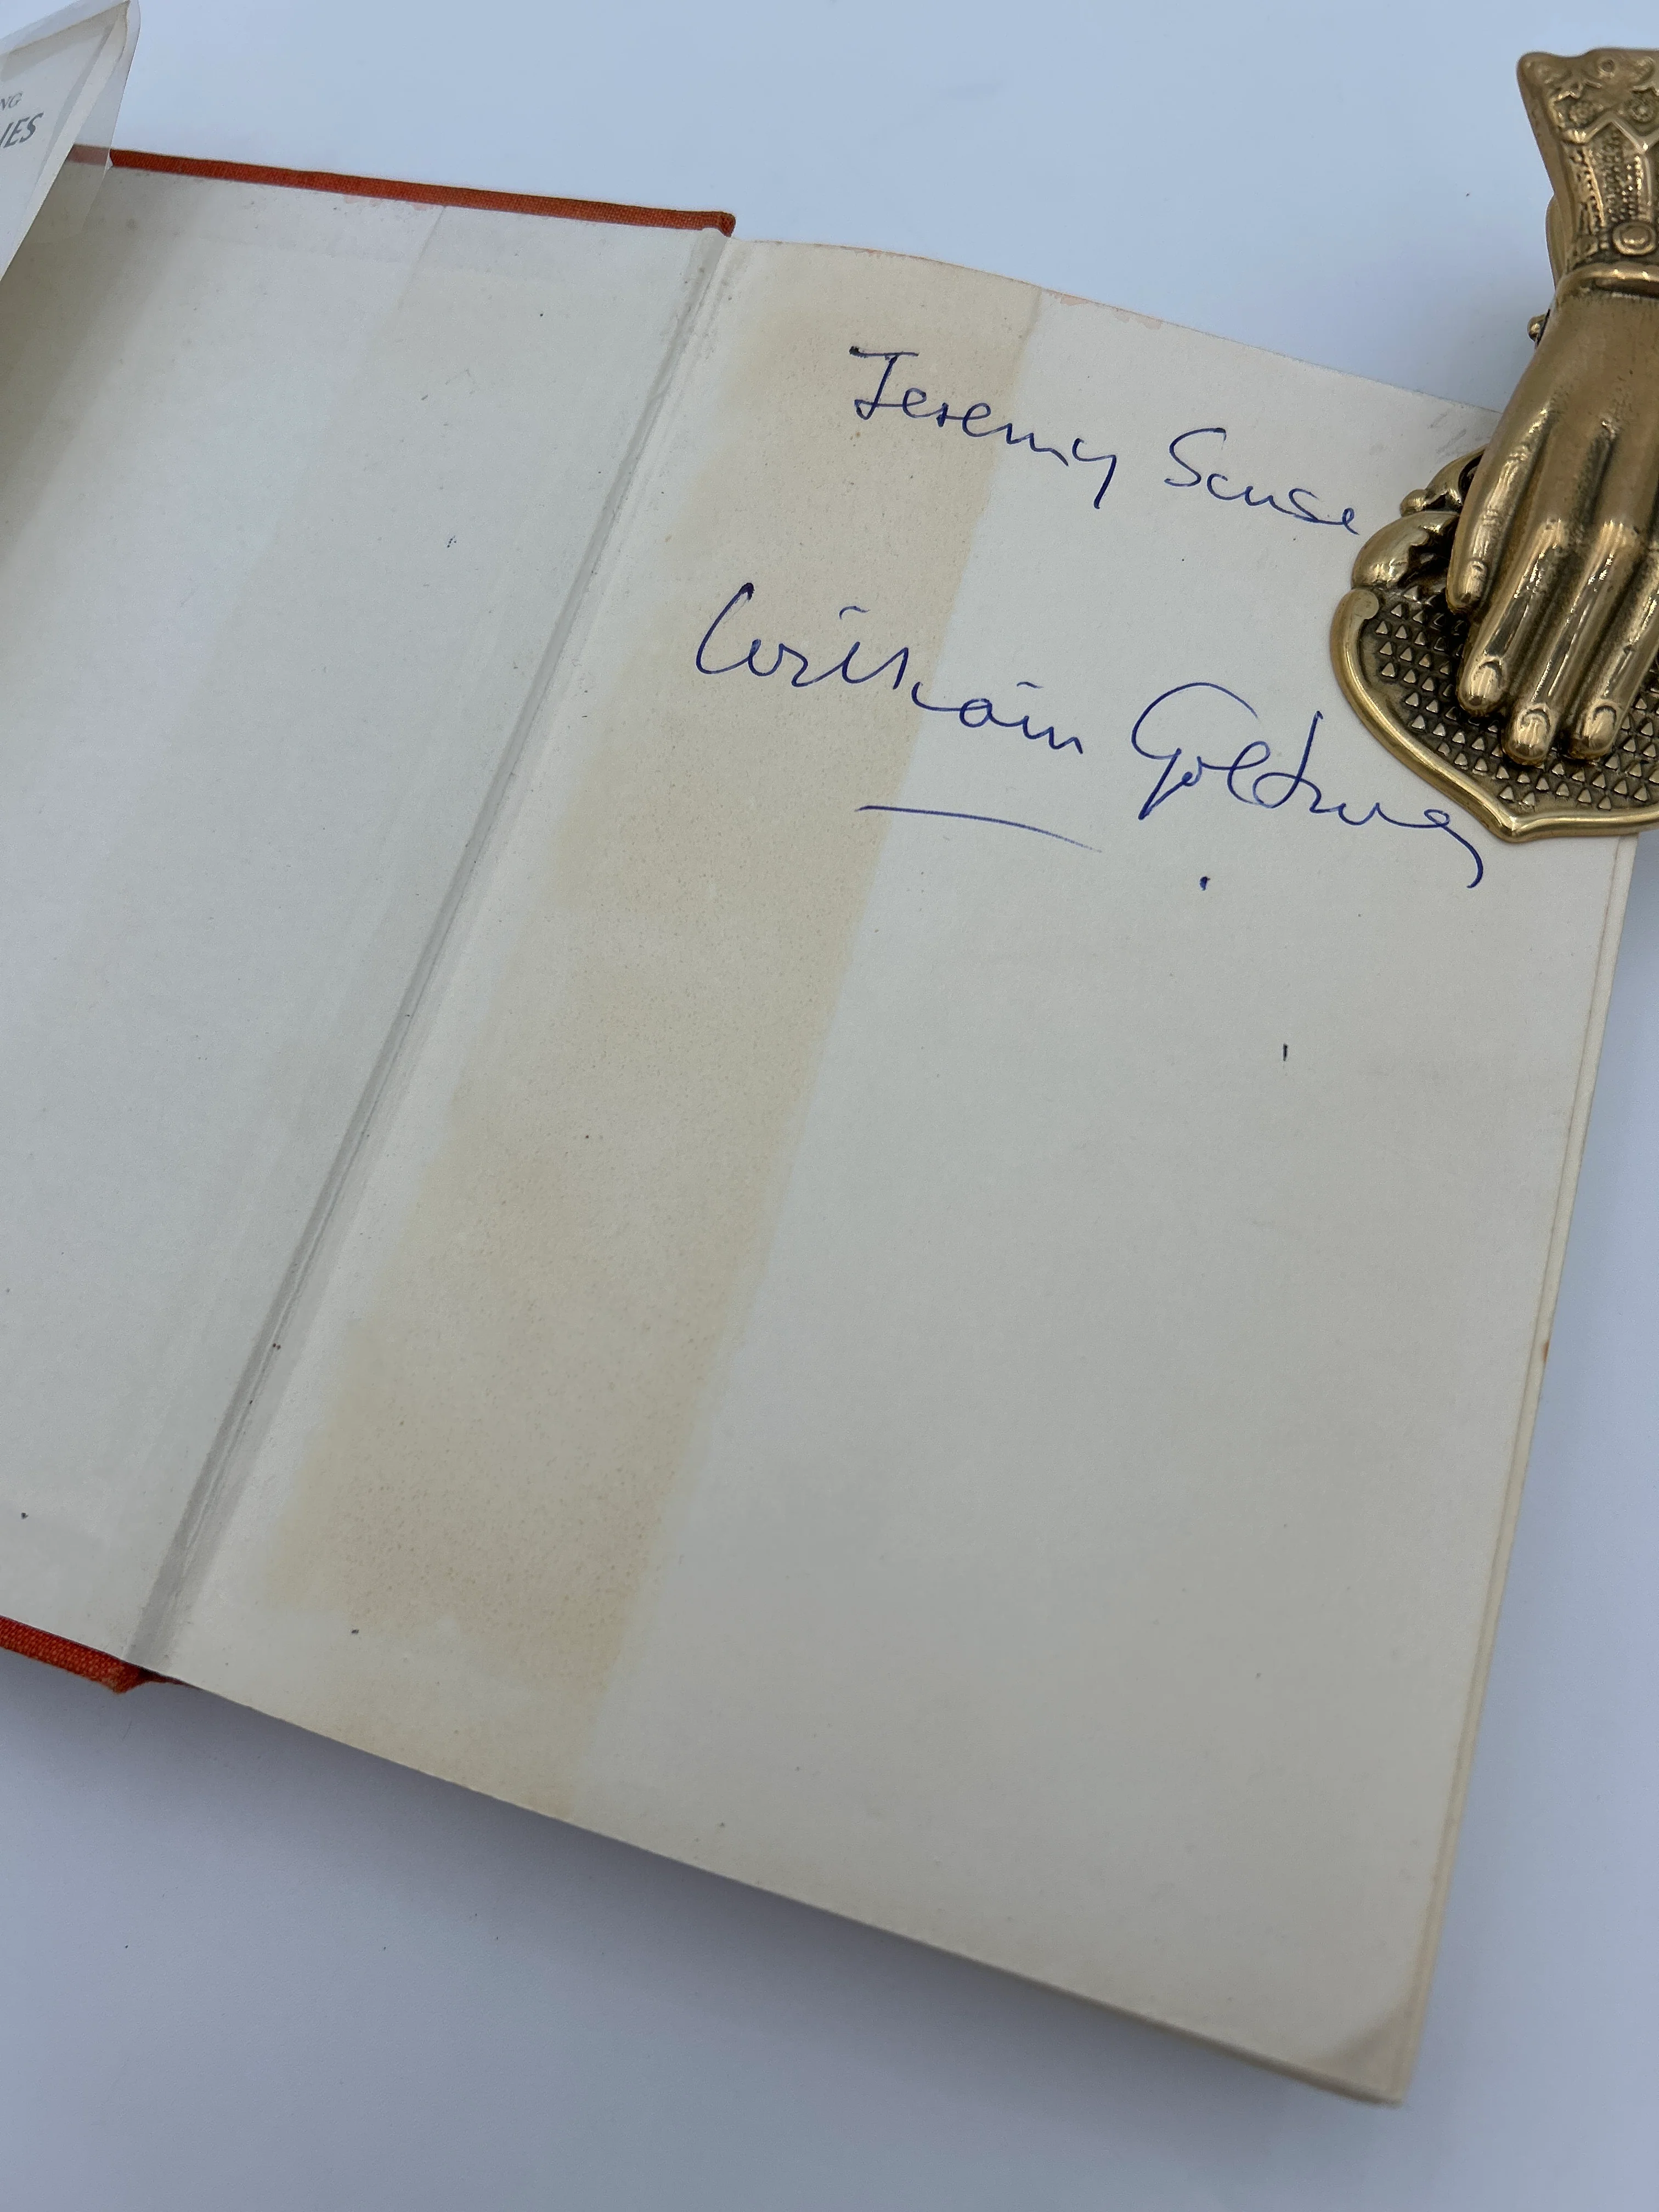 NG
IES
Jeremy Sause
William Golding